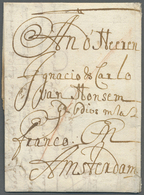 An d'Heeren
Ignacio & Carlo
Van Monsem
franco.
Amsterdam